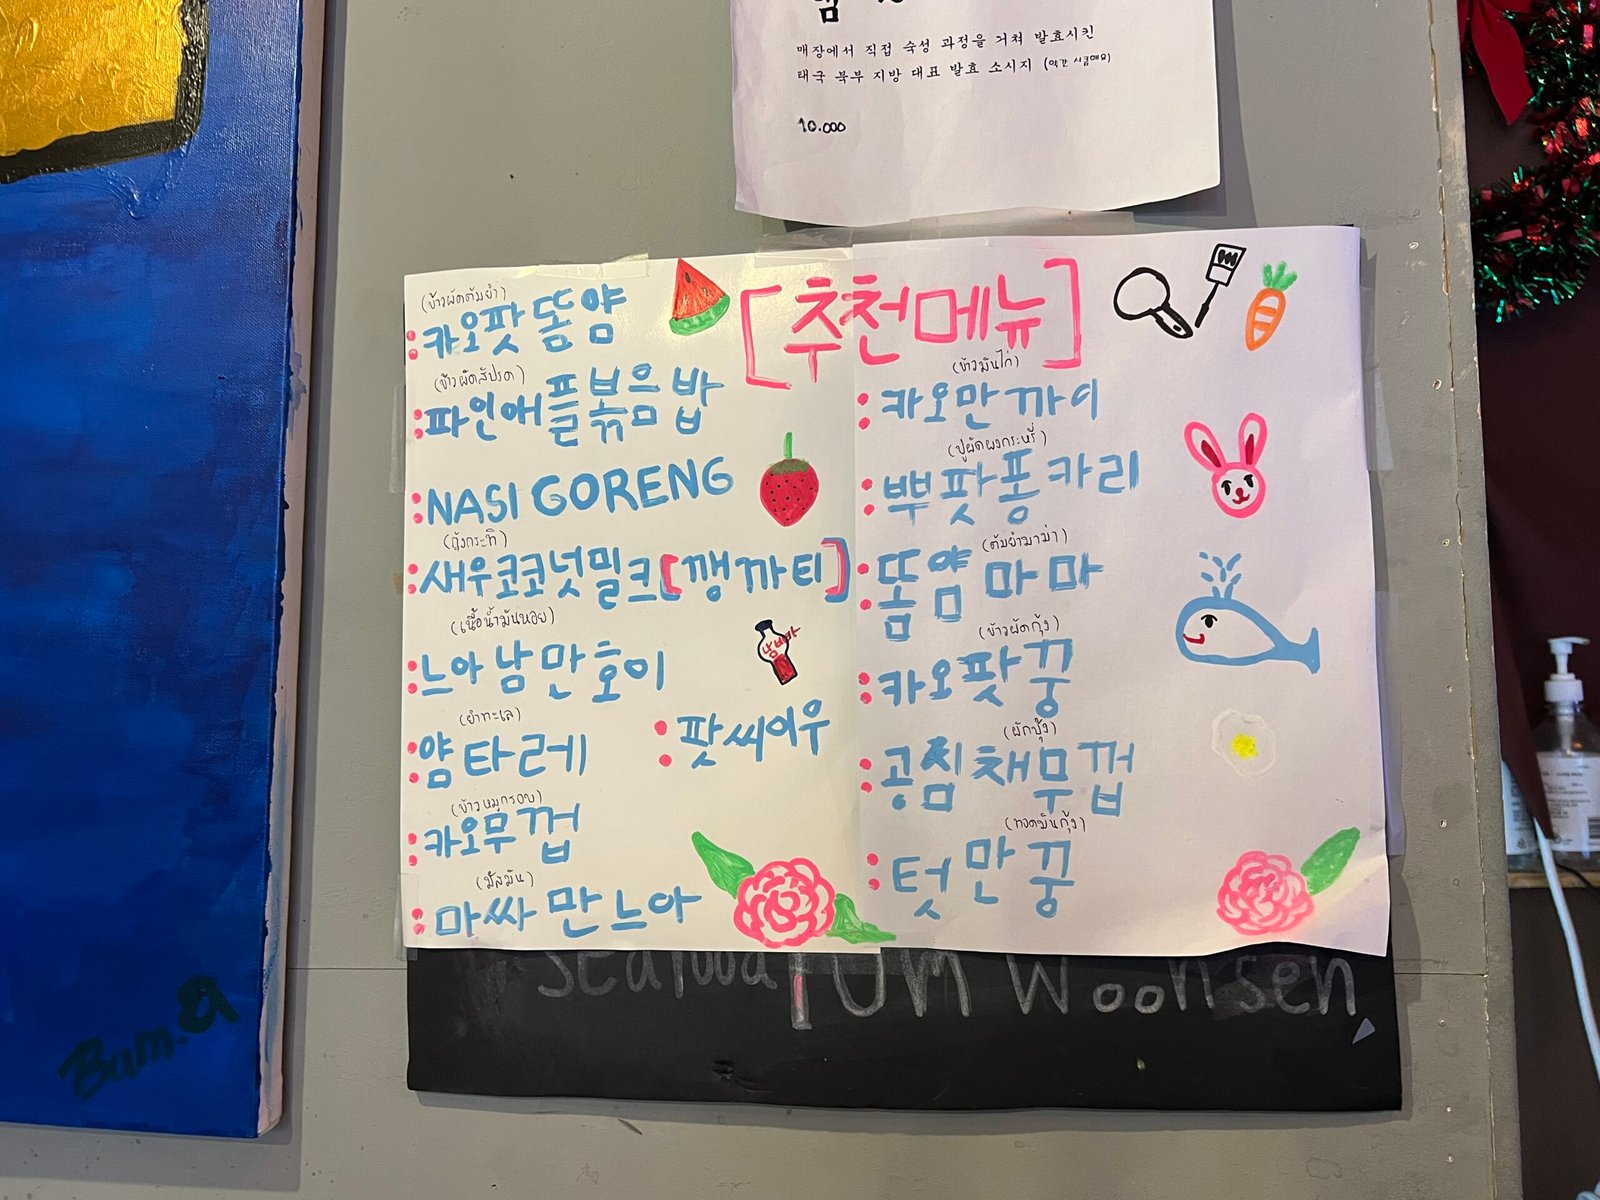 매장에서 직접 숙성 과정을 거쳐 발효시킨
태국 북부 지방 대표 발효 소시지 (약간 시큼해요)
10.000
[추천메뉴]
(ข้าวผัดต้มยำ)
카오팟 똠얌
(ข้าวผัดสัปรด)
파인애플볶음밥
NASI GORENG
(กุ้งกะทิ)
새우코코넛밀크[깽까티]
(เนื้อน้ำมันหอย)
느아남만호이
남쁘라
(ยำทะเล)
얌타레
팟씨이우
(ข้าวหมูกรอบ)
카오무껍
(มัสมั่น)
마싸만느아
(ข้าวมันไก่)
카오만까이
(ปูผัดผงกระหรี่)
뿌팟퐁카리
(ต้มยำมาม่า)
똠얌마마
(ข้าวผัดกุ้ง)
카오팟꿍
(ผักบุ้ง)
공심채무껍
(ทอดมันกุ้ง)
텃만꿍
Seafood Yum Woonsen
Bam.a